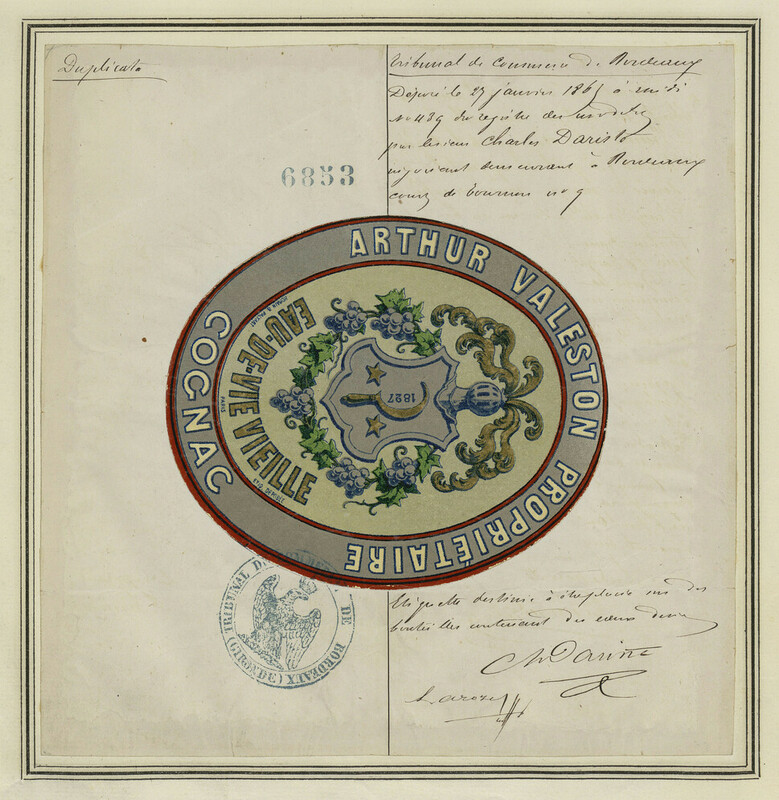 Duplicata
6853
Tribunal de Commerce de Bordeaux
Déposé le 27 janvier 1865 à midi
No 489 du registre des modèles
par le sieur Charles
négociant demeurant à Bordeaux
cours de Tournon no 9
ARTHUR VALESTON PROPRIÉTAIRE
COGNAC
EAU-DE-VIE VIEILLE
PARIS
1827
Etiquette destinée à être placée sur des
bouteilles contenant des eaux de vie
TRIBUNAL DE COMMERCE DE BORDEAUX
(GIRONDE)